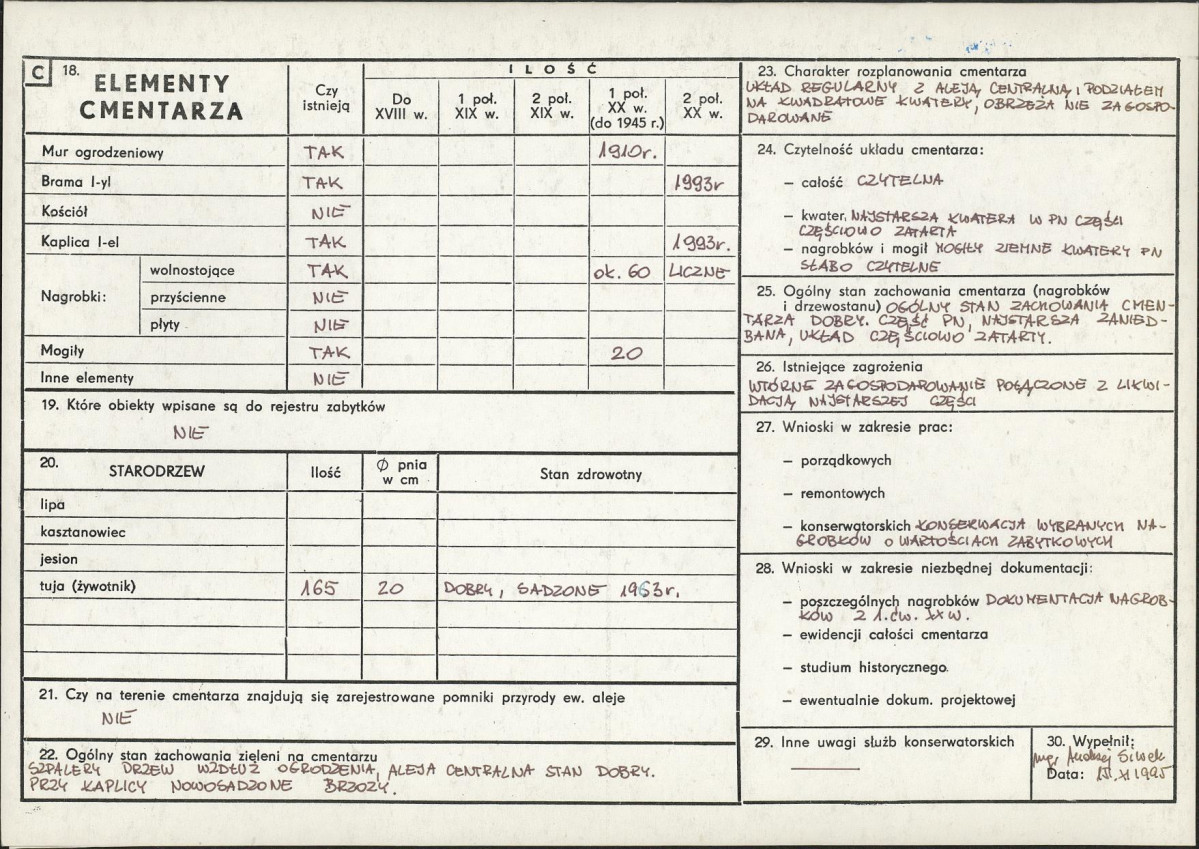 C 18. ELEMENTY CMENTARZA
Czy istnieją
ILOŚĆ
Do XVIII w.
1 poł. XIX w.
2 poł. XIX w.
1 poł. XX w. (do 1945 r.)
2 poł. XX w.
Mur ogrodzeniowy TAK 1910r.
Brama I-yl TAK 1993r
Kościół NIE
Kaplica I-el TAK 1993r.
Nagrobki: wolnostojące TAK ok. 60 LICZNE
przyścienne NIE
płyty NIE
Mogiły TAK 20
Inne elementy NIE
19. Które obiekty wpisane są do rejestru zabytków
NIE
20. STARODRZEW Ilość Ø pnia w cm Stan zdrowotny
lipa
kasztanowiec
jesion
tuja (żywotnik) 165 20 DOBRY, SADZONE 1963r.
21. Czy na terenie cmentarza znajdują się zarejestrowane pomniki przyrody ew. aleje
NIE
22. Ogólny stan zachowania zieleni na cmentarzu
SZPALERY DRZEW WZDŁUŻ OGRODZENIA, ALEJA CENTRALNA STAN DOBRY.
PRZY KAPLICY NOWOSADZONE BRZOZY.
23. Charakter rozplanowania cmentarza
UKŁAD REGULARNY Z ALEJĄ CENTRALNĄ I PODZIAŁEM
NA KWADRATOWE KWATERY, OBRZEŻA NIE ZAGOSPO-
DAROWANE
24. Czytelność układu cmentarza:
– całość CZYTELNA
– kwater, NAJSTARSZA KWATERA W PN CZĘŚCI
CZĘŚCIOWO ZATARTA
– nagrobków i mogił MOGIŁY ZIEMNE KWATERY PN
SŁABO CZYTELNE
25. Ogólny stan zachowania cmentarza (nagrobków
i drzewostanu) OGÓLNY STAN ZACHOWANIA CMEN-
TARZA DOBRY. CZĘŚĆ PN, NAJSTARSZA ZANIED-
BANA, UKŁAD CZĘŚCIOWO ZATARTY.
26. Istniejące zagrożenia
WTÓRNE ZAGOSPODAROWANIE POŁĄCZONE Z LIKWI-
DACJĄ NAJSTARSZEJ CZĘŚCI
27. Wnioski w zakresie prac:
– porządkowych
– remontowych
– konserwatorskich KONSERWACJA WYBRANYCH NA-
GROBKÓW O WARTOŚCIACH ZABYTKOWYCH
28. Wnioski w zakresie niezbędnej dokumentacji:
– poszczególnych nagrobków DOKUMENTACJA NAGROB-
KÓW Z 1. ĆW. XX W.
– ewidencji całości cmentarza
– studium historycznego
– ewentualnie dokum. projektowej
29. Inne uwagi służb konserwatorskich
30. Wypełnił:
mgr Andrzej Siwek
Data: XI 1995